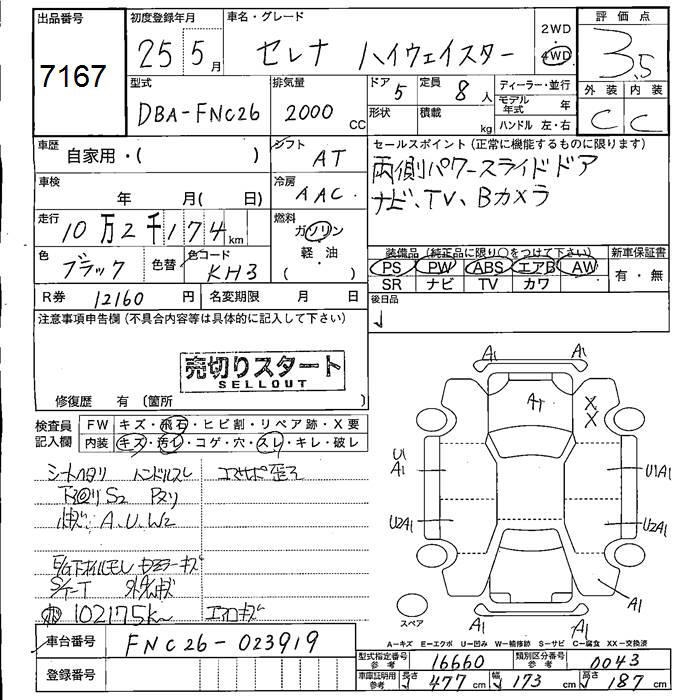 出品番号
7167
初度登録年月
25 5 月
車名・グレード
セレナ ハイウェイスター
2WD
4WD
評価点
3.5
外装 内装
C C
型式
DBA-FNC26
排気量
2000 CC
ドア 5
形状
定員 8 人
積載 kg
ディーラー・並行
モデル年式 年
ハンドル 左・右
車歴
自家用・( )
シフト AT
セールスポイント(正常に機能するものに限ります)
両側パワースライドドア
ナビ、TV、Bカメラ
車検 年 月( 日)
冷房 AAC
走行 10万2千174 km
燃料 ガソリン
軽・油
( )
色 ブラック 色替
色コード KH3
装備品(純正品に限り○をつけて下さい)
PS PW ABS エアB AW
SR ナビ TV カワ
新車保証書
有・無
R券 12160 円
名変期限 月 日
後日品
注意事項申告欄(不具合内容等は具体的に記入して下さい)
売切りスタート
SELLOUT
修復歴 有(箇所 )
検査員記入欄
FW キズ・飛石・ヒビ割・リペア跡・X要
内装 キズ・汚レ・コゲ・穴・スレ・キレ・破レ
シートヘタリ ハンドルスレ
S2
A.U.W2
102175km
A1 A1
A1
X
X
U1
A1
U1A1
U2A1
U2A1
A1
A1 A1
スペア
A-キズ E-エクボ U-凹み W-補修跡 S-サビ C-腐食 XX-交換済
車台番号 FNC26-023919
登録番号
型式指定番号参考 16660
類別区分番号参考 0043
車庫証明用参考 長さ 477 cm 幅 173 cm 高さ 187 cm